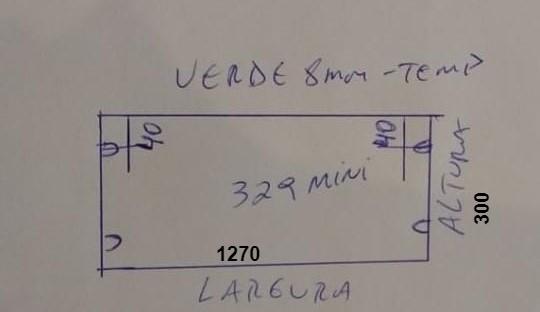 VERDE 8mm - TEMP
40
40
329 MINI
ALTURA
300
1270
LARGURA